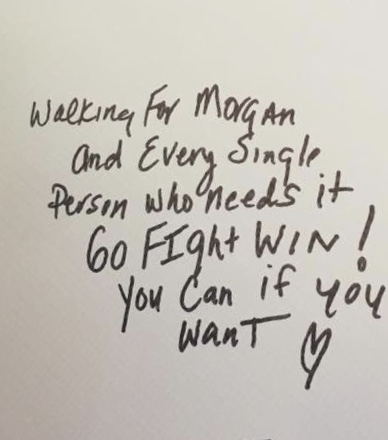 Walking For Morgan
and Every Single
Person who needs it
Go FIght WIN!
You Can if you
want ♡